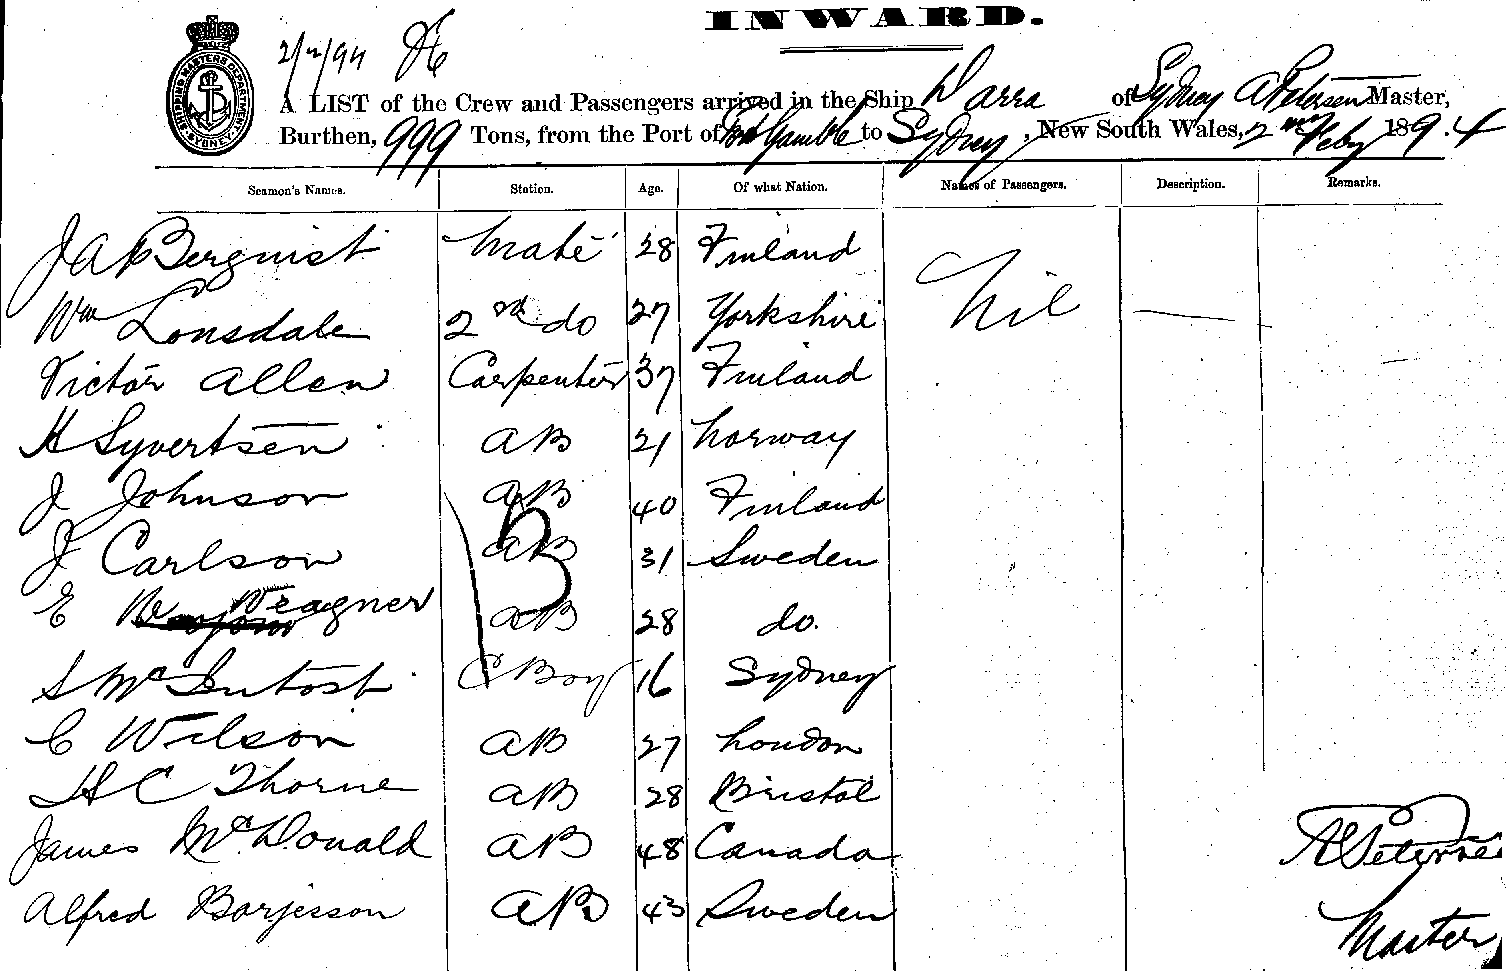 INWARD.
SHIPPING MASTERS DEPARTMENT SYDNEY
2/2/94
A LIST of the Crew and Passengers arrived in the Ship Darra of Sydney A Petersen Master,
Burthen, 999 Tons, from the Port of Port Gamble to Sydney, New South Wales, 2nd Feby 1894
Seamen's Names. Station. Age. Of what Nation. Names of Passengers. Description. Remarks.
J A Bergnist Mate 28 Finland Nil
Wm Lonsdale 2nd do 27 Yorkshire
Victor Allen Carpenter 37 Finland
H Syvertsen AB 21 Norway
J Johnson AB 40 Finland
J Carlson AB 31 Sweden
E Wragner AB 28 do.
S McIntosh C Boy 16 Sydney
C Wilson AB 27 London
H C Thorne AB 28 Bristol
James McDonald AB 48 Canada
Alfred Borjesson AB 43 Sweden
A Petersen
Master